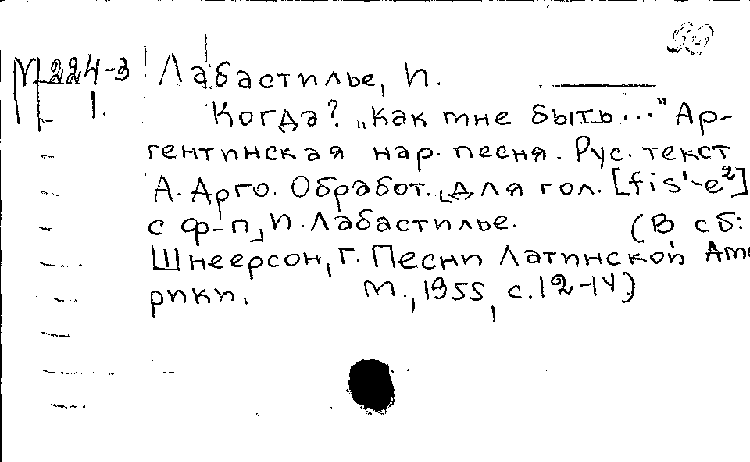 М 224-3 Лабастилье, И.
1. Когда? „Как мне быть..." Ар-
гентинская нар. песня. Рус. текст
А. Арго. Обработ. [для гол. [fis¹-e²]
с ф-п] И. Лабастилье. (В сб:
Шнеерсон, Г. Песни Латинской Аме
рики. М., 1955, с. 12-14)